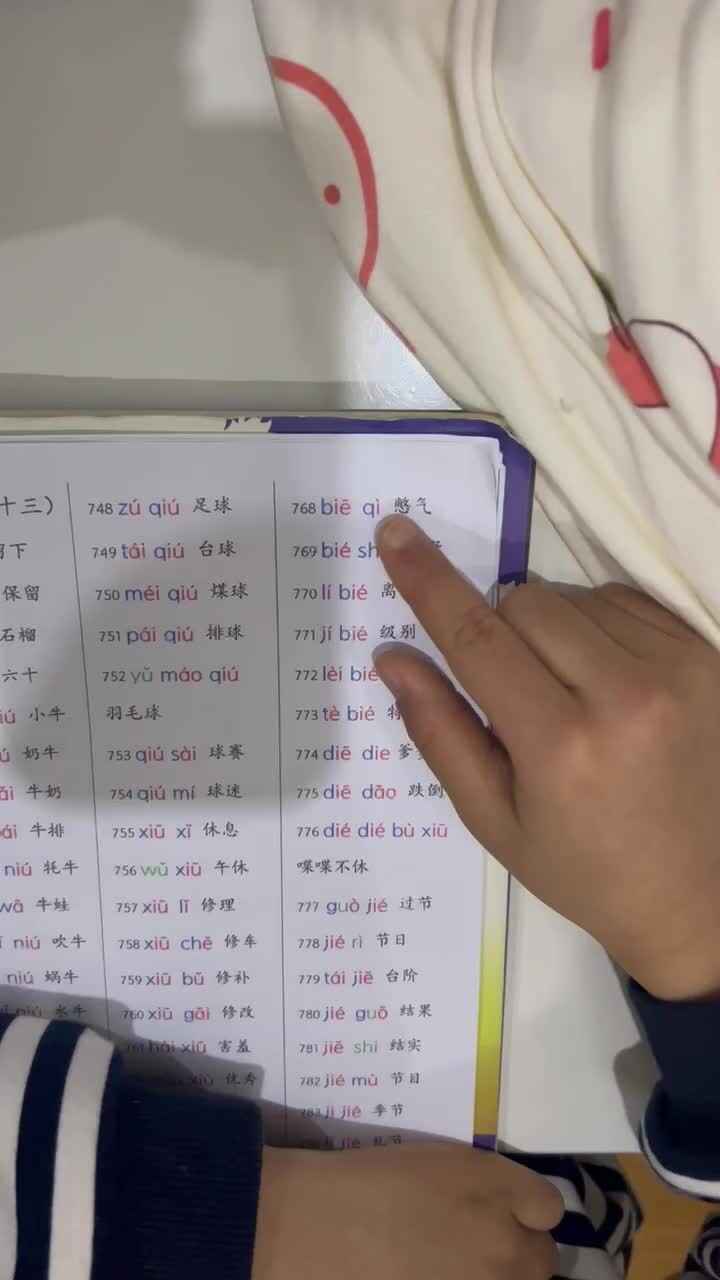 十三）
留下
保留
石榴
六十
小牛
奶牛
牛奶
牛排
niú 牦牛
wā 牛蛙
niú 吹牛
niú 蜗牛
水牛
748 zú qiú 足球
749 tái qiú 台球
750 méi qiú 煤球
751 pái qiú 排球
752 yǔ máo qiú
羽毛球
753 qiú sài 球赛
754 qiú mí 球迷
755 xiū xī 休息
756 wǔ xiū 午休
757 xiū lǐ 修理
758 xiū chē 修车
759 xiū bǔ 修补
760 xiū gǎi 修改
761 hài xiū 害羞
xiù 优秀
768 biē qì 憋气
769 bié
770 lí bié 离
771 jí bié 级别
772 lèi bié
773 tè bié 特
774 diē die 爹
775 diē dǎo 跌倒
776 dié dié bù xiū
喋喋不休
777 guò jié 过节
778 jié rì 节日
779 tái jiē 台阶
780 jié guǒ 结果
781 jiē shi 结实
782 jié mù 节目
783 jì jié 季节